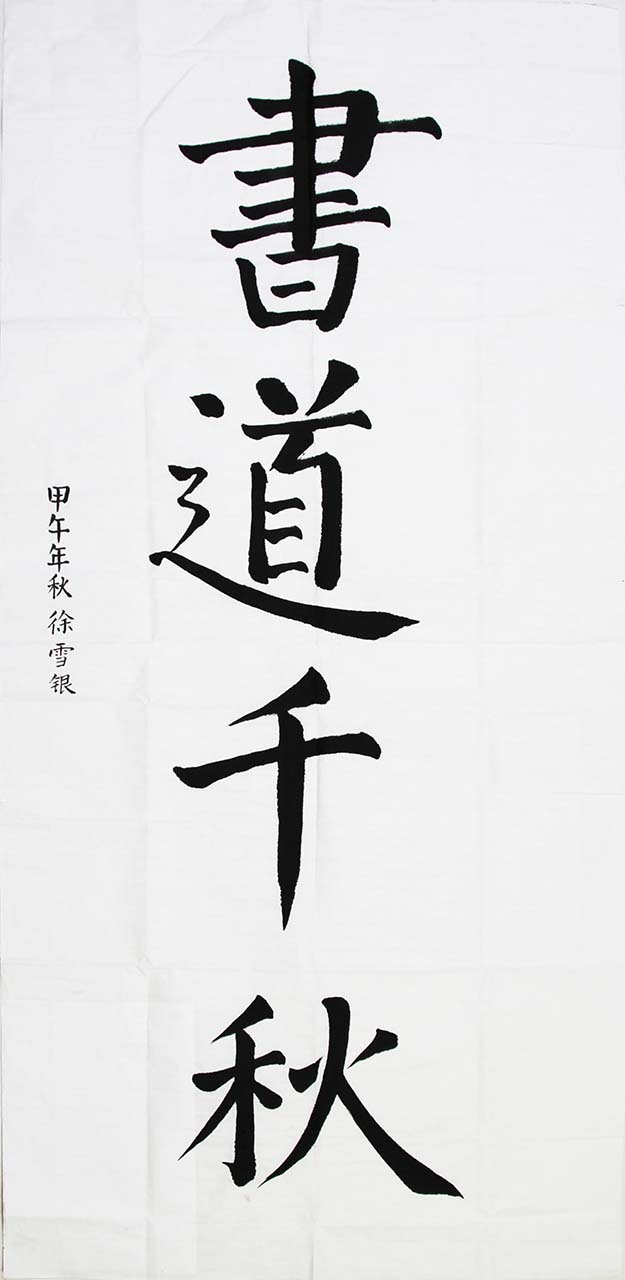 書道千秋
甲午年秋 徐雪银